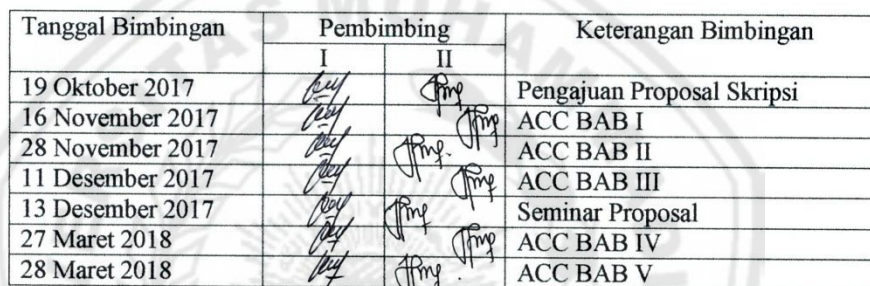 Tanggal Bimbingan Pembimbing Keterangan Bimbingan
I II
19 Oktober 2017 Pengajuan Proposal Skripsi
16 November 2017 ACC BAB I
28 November 2017 ACC BAB II
11 Desember 2017 ACC BAB III
13 Desember 2017 Seminar Proposal
27 Maret 2018 ACC BAB IV
28 Maret 2018 ACC BAB V